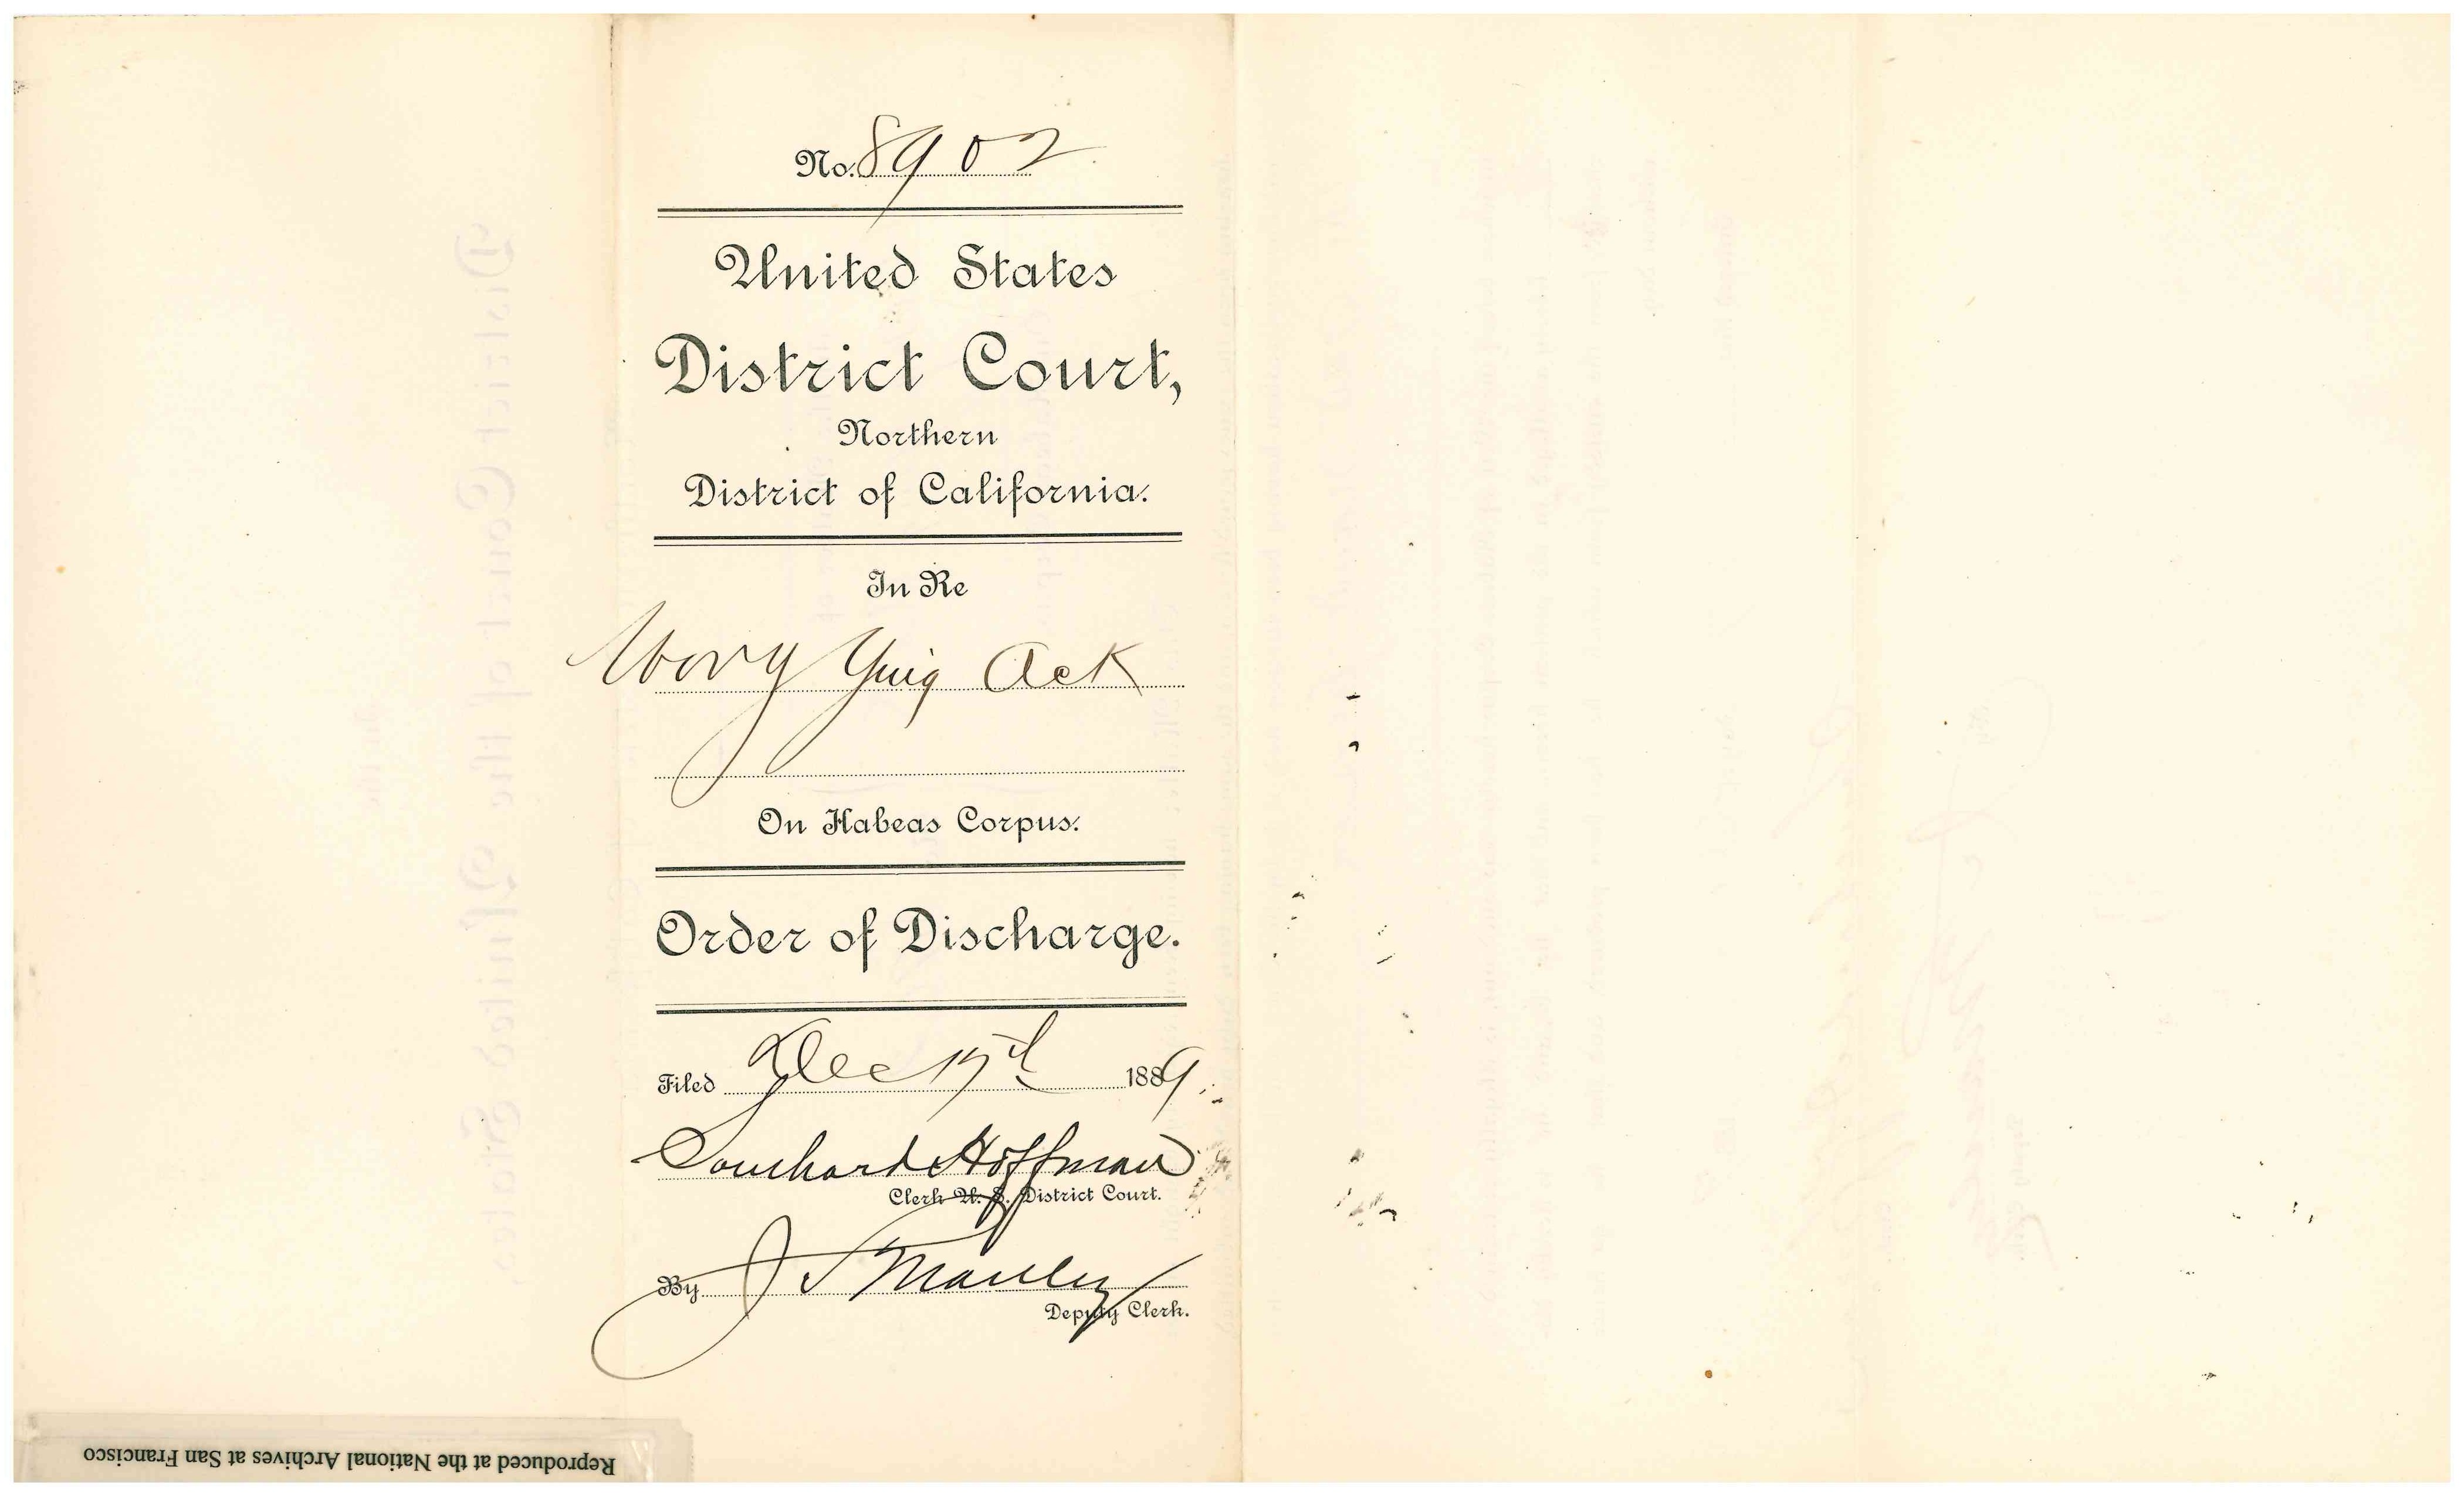 No. 8902
United States
District Court,
Northern
District of California.
In Re
Wong Ying Ack
On Habeas Corpus.
Order of Discharge.
Filed Dec 17th 1889.
Southard Hoffman
Clerk U. S. District Court.
By J S Manley
Deputy Clerk.
Reproduced at the National Archives at San Francisco